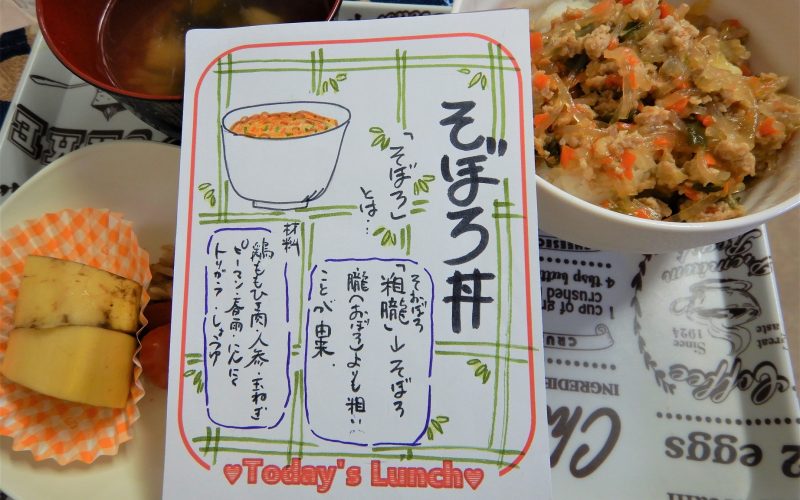 そぼろ丼
「そぼろ」
とは…
そおぼろ
「粗朧」→そぼろ
朧(おぼろ)よりも粗い
ことが由来.
材料
鶏ももひき肉 人参・玉ねぎ
ピーマン・春雨・にんにく
トリガラ・しょうゆ
♥Today's Lunch♥
1 cup of gr
crushed
4 tbsp butt
CRUS
Since
1924
Coffee
INGREDIE
2 eggs